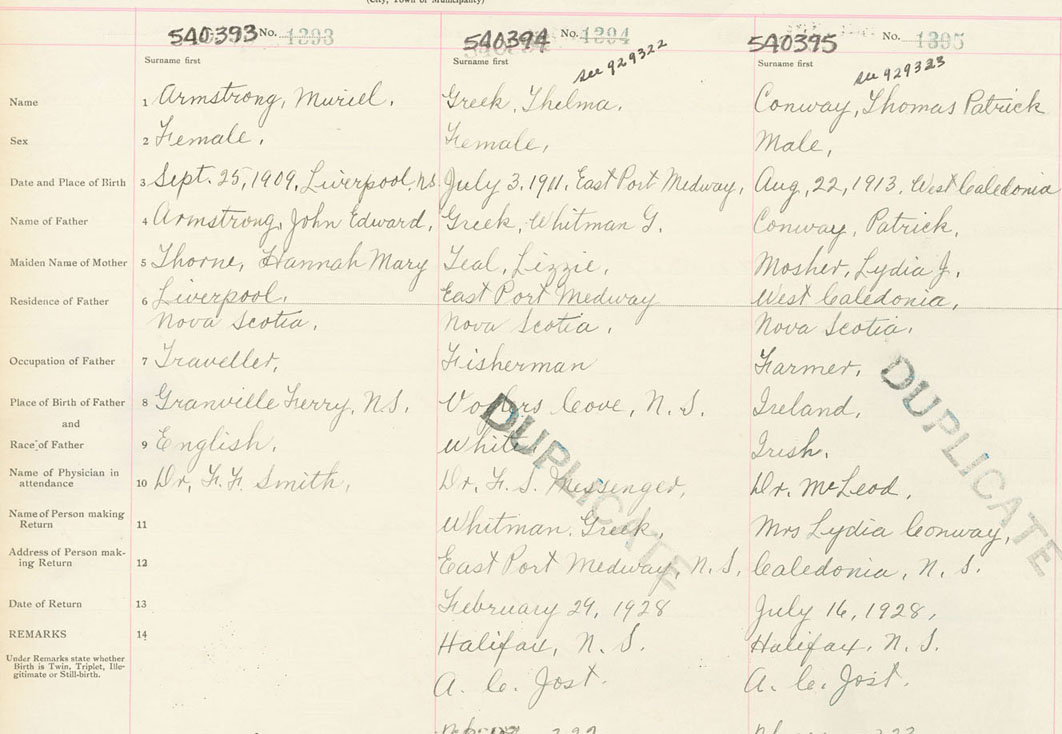 (City, Town or Municipality)
540393 No. 1393
540394 No. 1394
540395 No. 1395
Surname first
Surname first see 929322
Surname first see 929323
Name 1 Armstrong, Muriel. Greek, Thelma. Conway, Thomas Patrick
Sex 2 Female. Female, Male,
Date and Place of Birth 3 Sept. 25, 1909, Liverpool, N.S. July 3, 1911, East Port Medway, Aug, 22, 1913, West Caledonia
Name of Father 4 Armstrong, John Edward, Greek, Whitman G. Conway, Patrick,
Maiden Name of Mother 5 Thorne, Hannah Mary Teal, Lizzie, Mosher, Lydia J.
Residence of Father 6 Liverpool, East Port Medway West Caledonia,
Nova Scotia. Nova Scotia. Nova Scotia.
Occupation of Father 7 Traveller, Fisherman Farmer,
Place of Birth of Father 8 Granville Ferry, N.S. Voglers Cove, N. S. Ireland,
and
Race of Father 9 English. White Irish.
Name of Physician in
attendance 10 Dr. F. F. Smith, Dr. F. S. Messenger, Dr. McLeod,
Name of Person making
Return 11 Whitman Greek, Mrs Lydia Conway,
Address of Person mak-
ing Return 12 East Port Medway, N. S. Caledonia, N. S.
Date of Return 13 February 29, 1928 July 16, 1928,
REMARKS 14 Halifax, N. S. Halifax, N. S.
Under Remarks state whether
Birth is Twin, Triplet, Ille-
gitimate or Still-birth.
A. C. Jost. A. C. Jost.
DUPLICATE
DUPLICATE